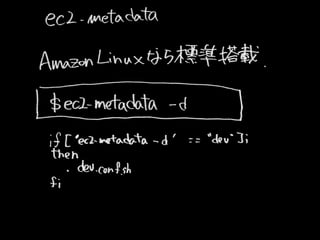 ec2-metadata
Amazon Linuxなら標準搭載.
$ec2-metadata -d
if [ "ec2-metadata -d" == "dev" ];
then
. dev.conf.sh
fi